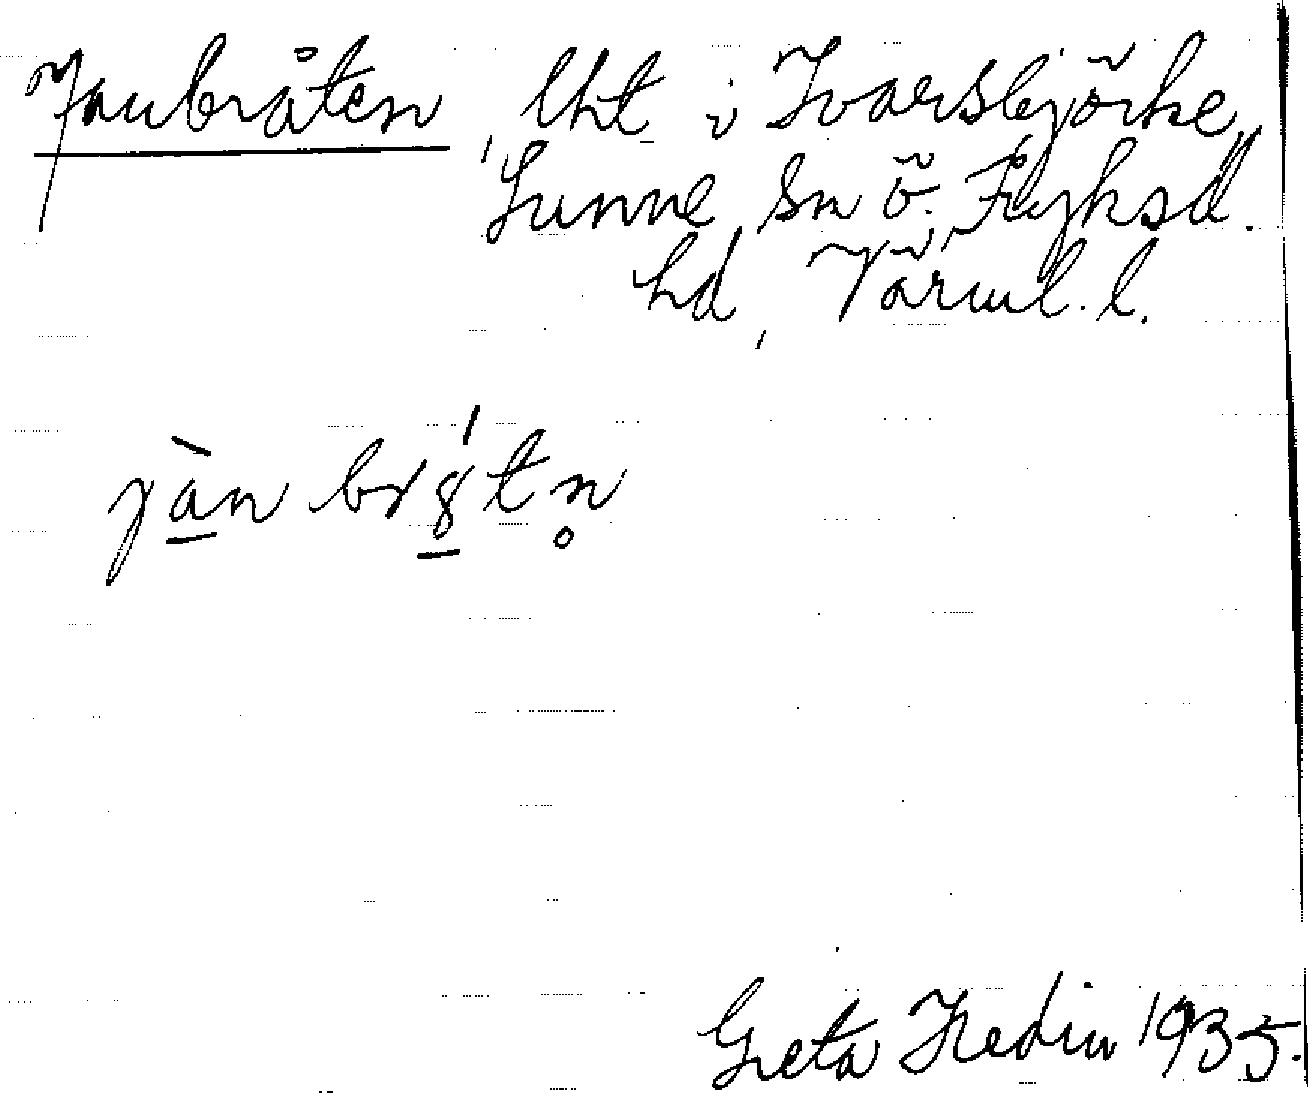 Janbråten, lht i Ivarsbjörke,
Sunne sn Ö. Fryksd.
hd, Värml. l.
jàn br8́tn̥
Greta Hedin 1935.